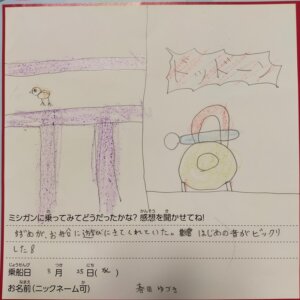 ドッドーン
ミシガンに乗ってみてどうだったかな？感想を聞かせてね！
かもめが、お船に遊びにきてくれていた。はじめの音がビックリ
した８
乗船日 3月25日(水)
お名前(ニックネーム可) 春日 ゆづき